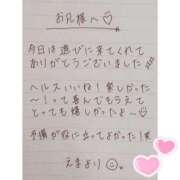 お兄様へ♡
今日は遊びに来てくれて
ありがとうございました
ヘルスいいね！楽しかった
〜！って喜んでもらえて
とっても嬉しかったよ〜♡
予備が役に立ってよかった！笑
えまより☺